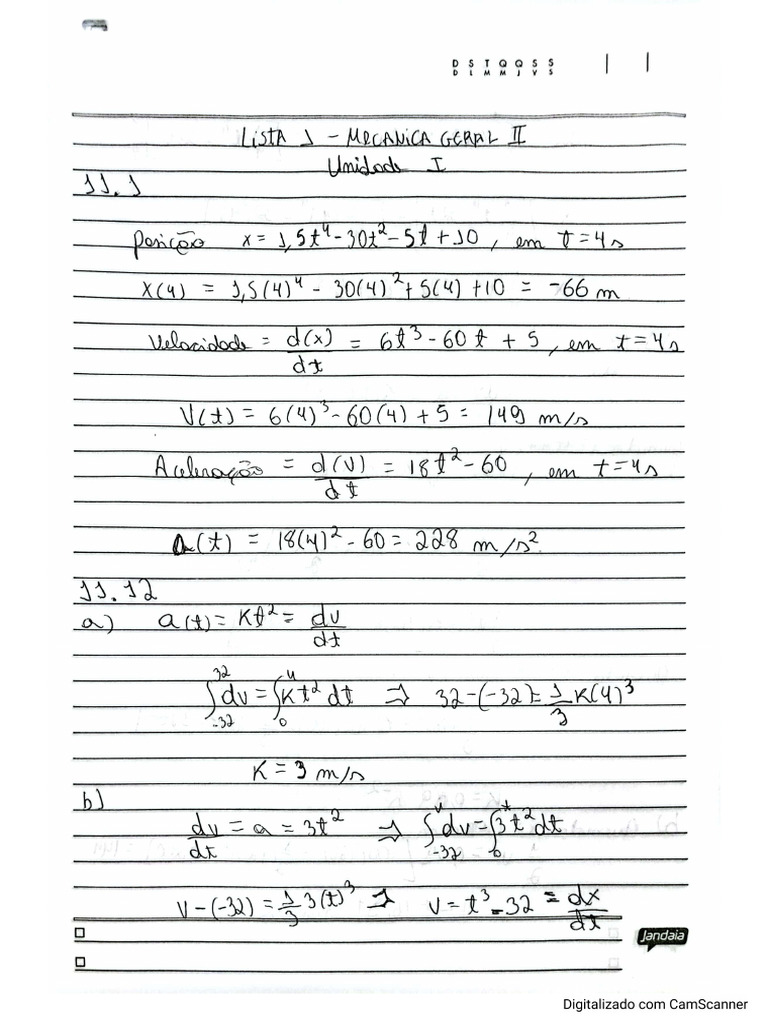 D S T Q Q S S
D L M M J V S
LISTA 1 - MECANICA GERAL II
Unidade I
11.1
Posição x = 1,5t⁴ - 30t² - 5t + 10, em t = 4s
X(4) = 1,5(4)⁴ - 30(4)² + 5(4) + 10 = -66 m
Velocidade = d(x)/dt = 6t³ - 60t + 5, em t = 4s
V(t) = 6(4)³ - 60(4) + 5 = 149 m/s
Aceleração = d(V)/dt = 18t² - 60, em t = 4s
a(t) = 18(4)² - 60 = 228 m/s²
11.12
a) a(t) = Kt² = dv/dt
∫₋₃₂³² dv = ∫₀⁴ Kt² dt ⇒ 32 - (-32) = 1/3 K(4)³
K = 3 m/s
b)
dv/dt = a = 3t² ⇒ ∫₋₃₂ᵛ dv = ∫₀ᵗ 3t² dt
V - (-32) = 1/3 3(t)³ ⇒ V = t³ - 32 = dx/dt
Jandaia
Digitalizado com CamScanner